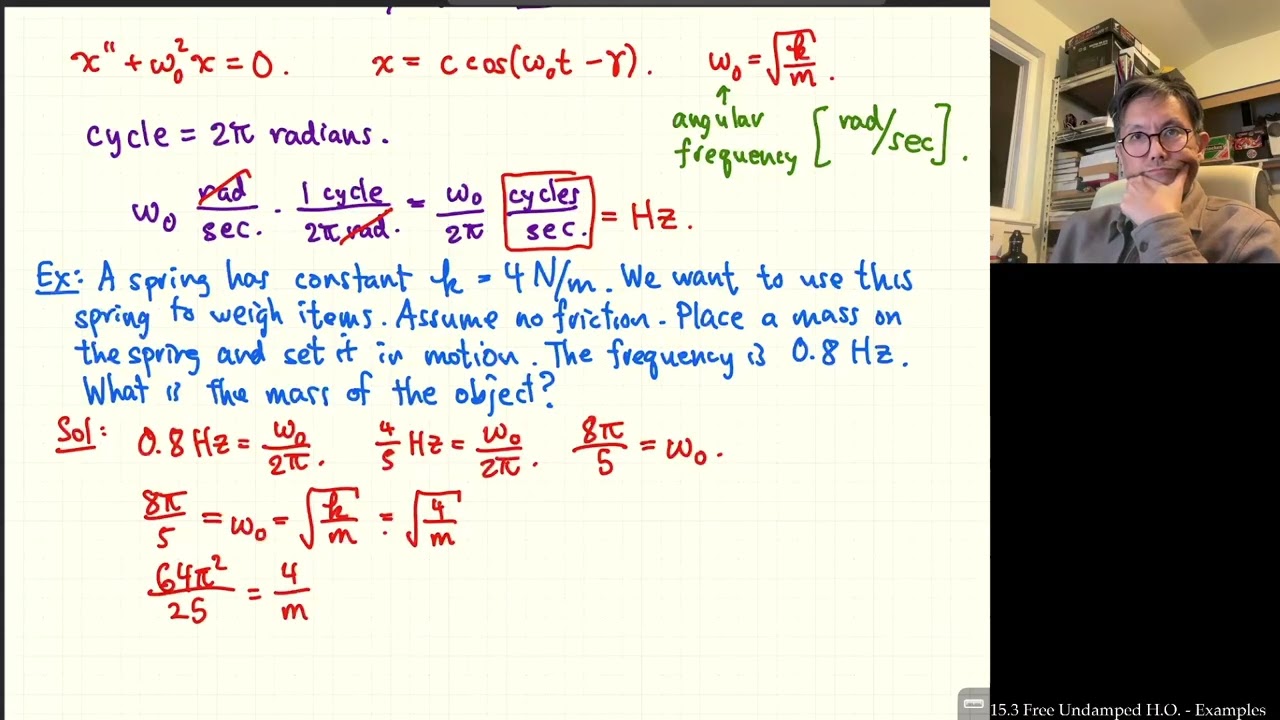 x'' + ω₀² x = 0. x = c cos(ω₀t − γ). ω₀ = √(k/m).
↑
angular frequency [rad/sec].
cycle = 2π radians.
ω₀ rad/sec. · 1 cycle/2π rad. = ω₀/2π cycles/sec. = Hz.
Ex: A spring has constant k = 4 N/m. We want to use this
spring to weigh items. Assume no friction. Place a mass on
the spring and set it in motion. The frequency is 0.8 Hz.
What is the mass of the object?
Sol: 0.8 Hz = ω₀/2π. 4/5 Hz = ω₀/2π. 8π/5 = ω₀.
8π/5 = ω₀ = √(k/m) = √(4/m)
64π²/25 = 4/m
15.3 Free Undamped H.O. - Examples